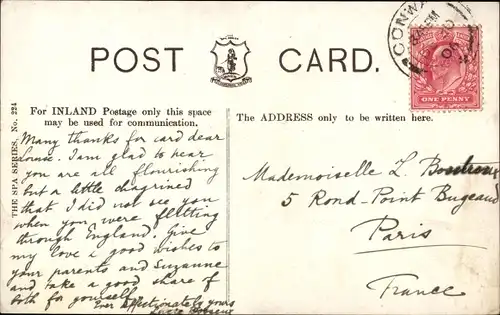 POST CARD.
CONWA
ONE PENNY
THE SPA SERIES. No. 224
For INLAND Postage only this space
may be used for communication.
The ADDRESS only to be written here.
Many thanks for card dear
Louise. I am glad to hear
you are all flourishing
but a little chagrined
that I did not see you
when you were flitting
through England. Give
my love & good wishes to
your parents and Suzanne
and take a good share of
both for yourself.
Ever affectionately yours
Mademoiselle L.
5 Rond-Point Bugeaud
Paris
France